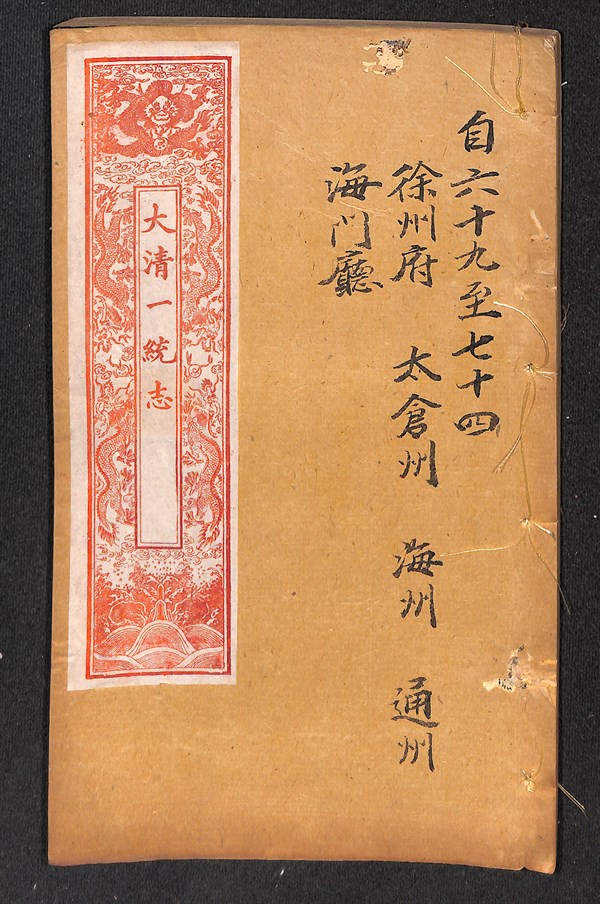 自六十九至七十四
徐州府 太倉州 海州 通州
海门廳
大清一統志